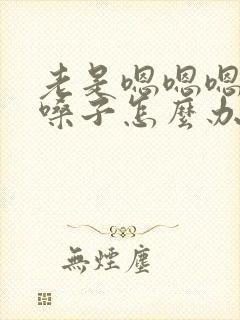 老是嗯嗯嗯
嗓子怎麼办
無煙塵